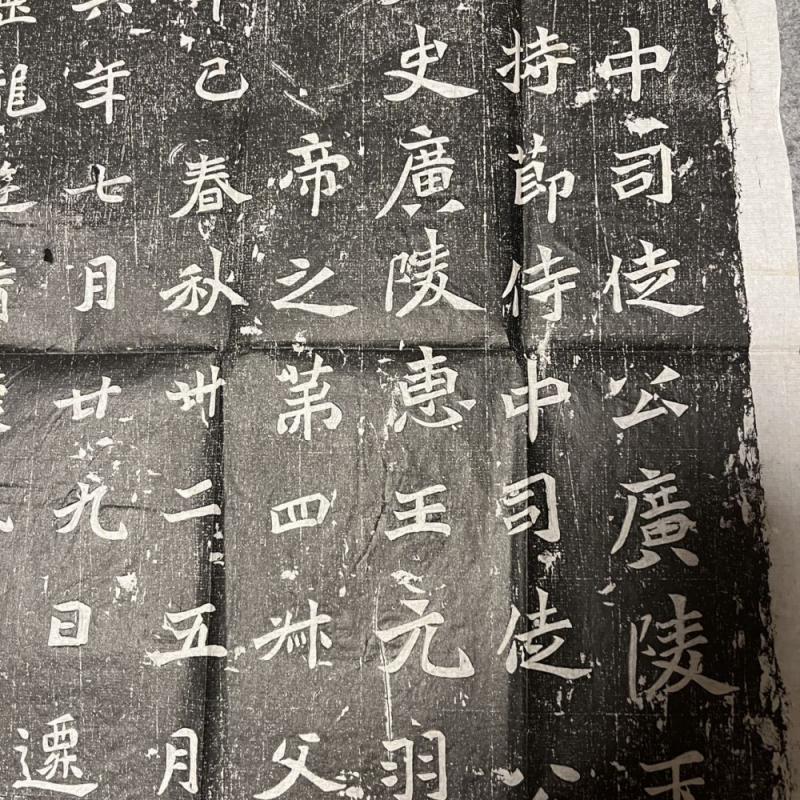 中司徒公廣陵王
持節侍中司徒公
史廣陵惠王元羽
帝之第四叔父
己春秋卅二五月
年七月廿九日遷
龍